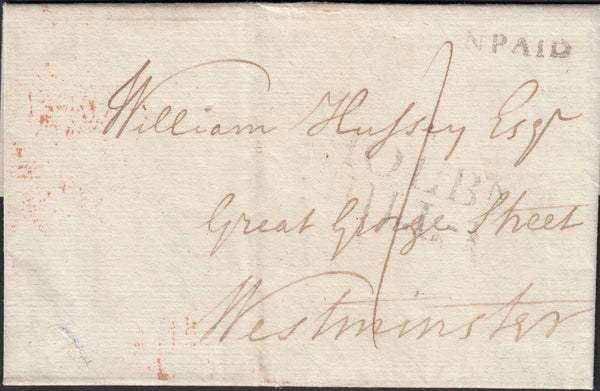 NPAID
William Hussey Esqr
Great George Street
Westminster